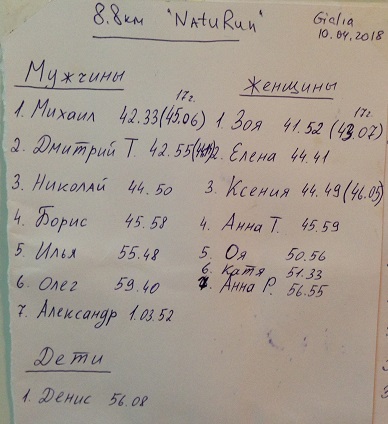 8.8км "NatuRun"
Gialia
10.04.2018
Мужчины
17г.
1. Михаил 42.33(45.06)
2. Дмитрий Т. 42.55
3. Николай 44.50
4. Борис 45.58
5. Илья 55.48
6. Олег 59.40
7. Александр 1.03 52
Женщины
17г.
1. Зоя 41.52 (43.07)
2. Елена 44.41
3. Ксения 44.49(46.05)
4. Анна Т. 45.59
5. Оя 50.56
6. Катя 51.33
7. Анна Р. 56.55
Дети
1. Денис 56.08